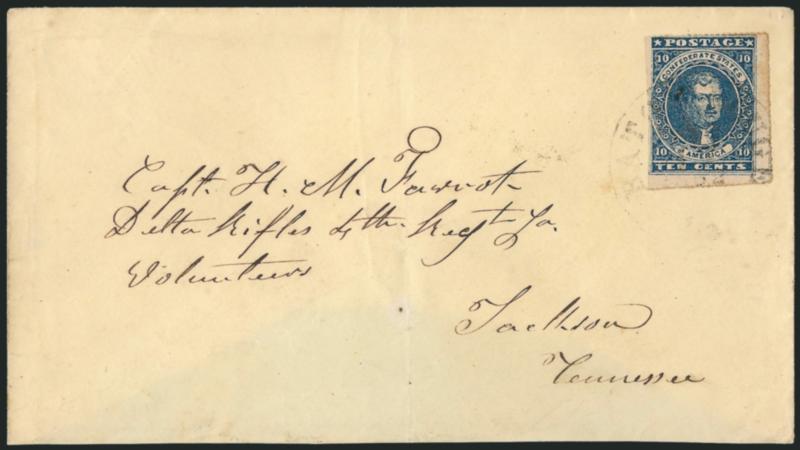 POSTAGE
10 10
CONFEDERATE STATES
OF AMERICA
10 10
TEN CENTS
BATO
Capt. H. M. Favrot
Delta Rifles 4th Regt La.
Volunteers
Jackson
Tennessee